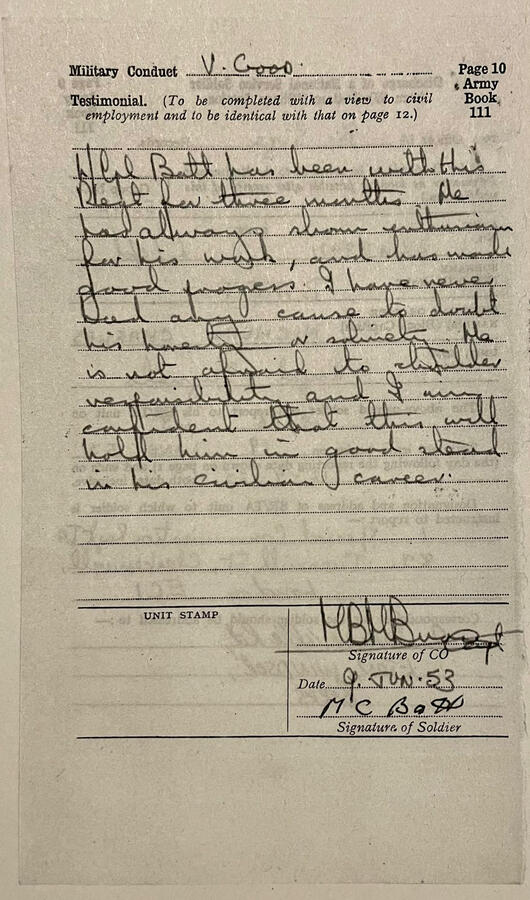 Military Conduct V. Good. Page 10
Army
Book
111
Testimonial. (To be completed with a view to civil
employment and to be identical with that on page 12.)
Batt has been with this
Regt for three months. He
has always shown enthusiasm
for his work, and has made
good progress. I have never
had any cause to doubt
his honesty or sobriety. He
is not afraid to shoulder
responsibility and I am
confident that this will
hold him in good stead
in his civilian career.
UNIT STAMP
Signature of CO
Date 9. JUN. 53
M C Batt
Signature of Soldier